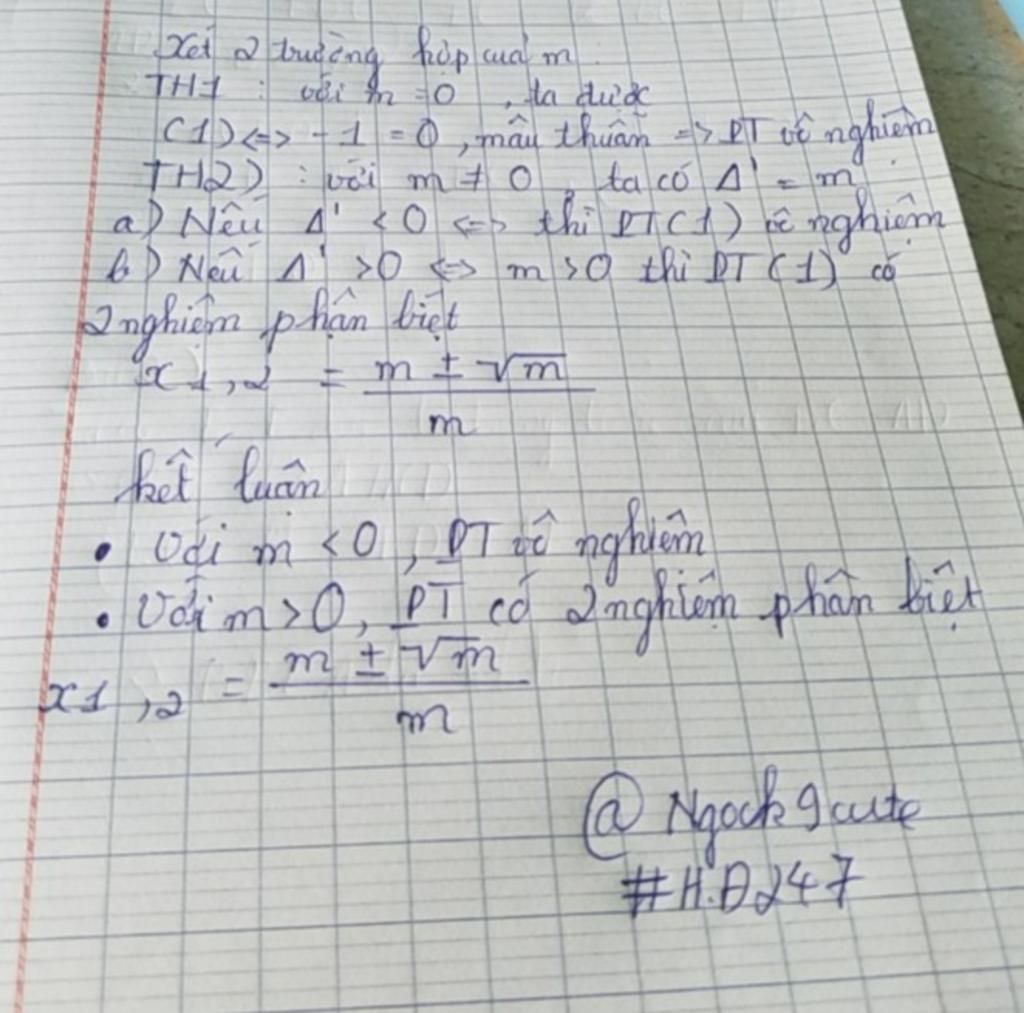 Xét 2 trường hợp của m
TH1 : với m = 0 , ta được
(1) <=> -1 = 0 , mâu thuẫn => PT vô nghiệm
TH2) : với m ≠ 0 , ta có Δ' = m
a) Nếu Δ' < 0 <=> thì PT(1) vô nghiệm
b) Nếu Δ' > 0 <=> m > 0 thì PT (1) có
2 nghiệm phân biệt
x1,2 = m ± √m / m
kết luân
• Với m < 0 , PT vô nghiệm
• Với m > 0, PT có 2 nghiệm phân biệt
x1,2 = m ± √m / m
@ Ngock9cute
#H.D247